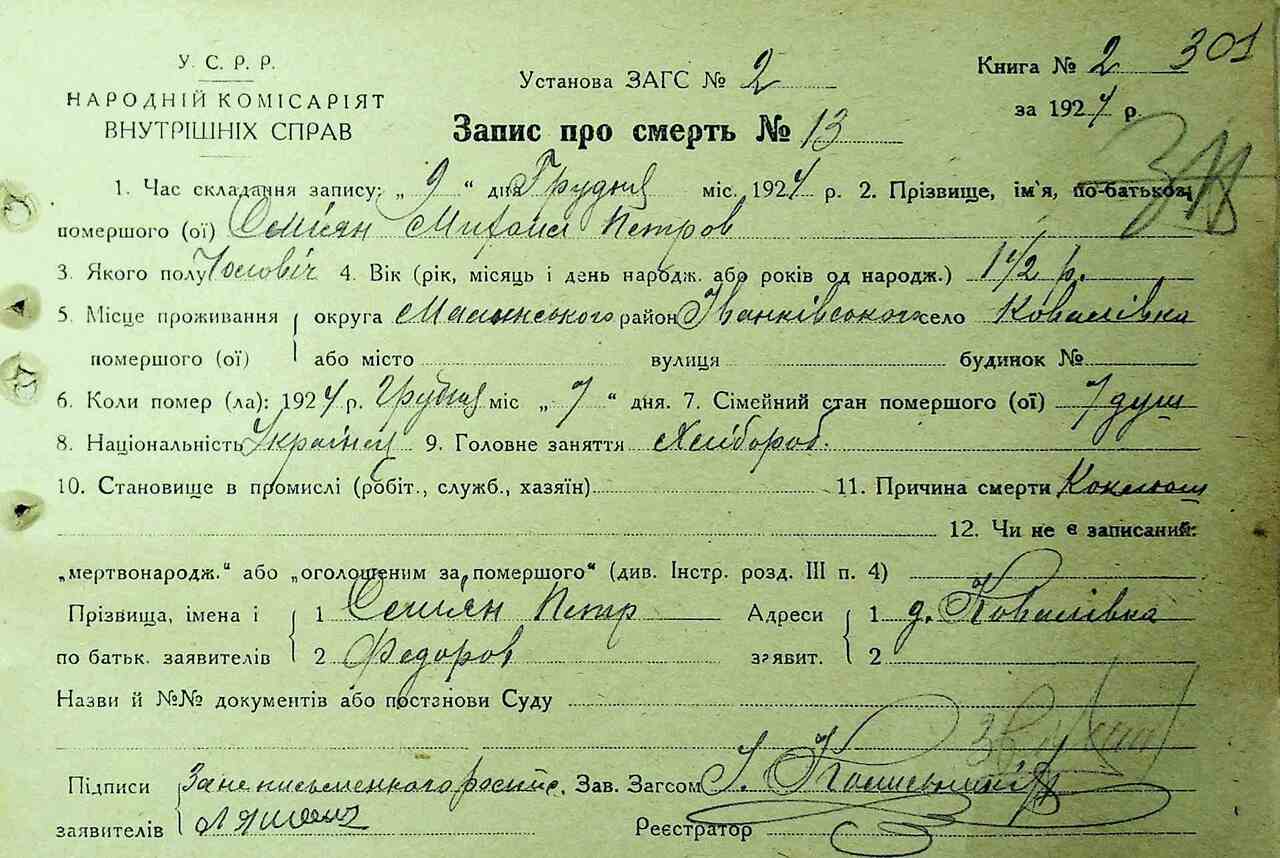 У. С. Р. Р.
НАРОДНІЙ КОМІСАРІЯТ
ВНУТРІШНІХ СПРАВ
Установа ЗАГС № 2
Книга № 2 301
за 1924 р.
Запис про смерть № 13
1. Час складання запису: „ 9 “ дня Грудня міс. 1924 р. 2. Прізвище, ім'я, по-батькові
помершого (ої) Семіян Михаил Петров
3. Якого полу Чоловіч 4. Вік (рік, місяць і день народж. або років од народж.) 1 1/2 р.
5. Місце проживання округа Малинського район Іванківського село Ковалівка
помершого (ої) або місто вулиця будинок №
6. Коли помер (ла): 1924 р. Грудня міс „ 7 “ дня. 7. Сімейний стан помершого (ої) 7 душ
8. Національність 9. Головне заняття Хлібороб.
10. Становище в промислі (робіт., служб., хазяїн) 11. Причина смерти Коклюш
12. Чи не є записаний:
„мертвонародж.“ або „оголошеним за помершого“ (див. Інстр. розд. III п. 4)
Прізвища, імена і 1 Семіян Петр Адреси 1 д. Ковалівка
по батьк. заявителів 2 Федоров заявит. 2
Назви й №№ документів або постанови Суду
Підписи За неписьменного Зав. Загсом
заявителів Реєстратор